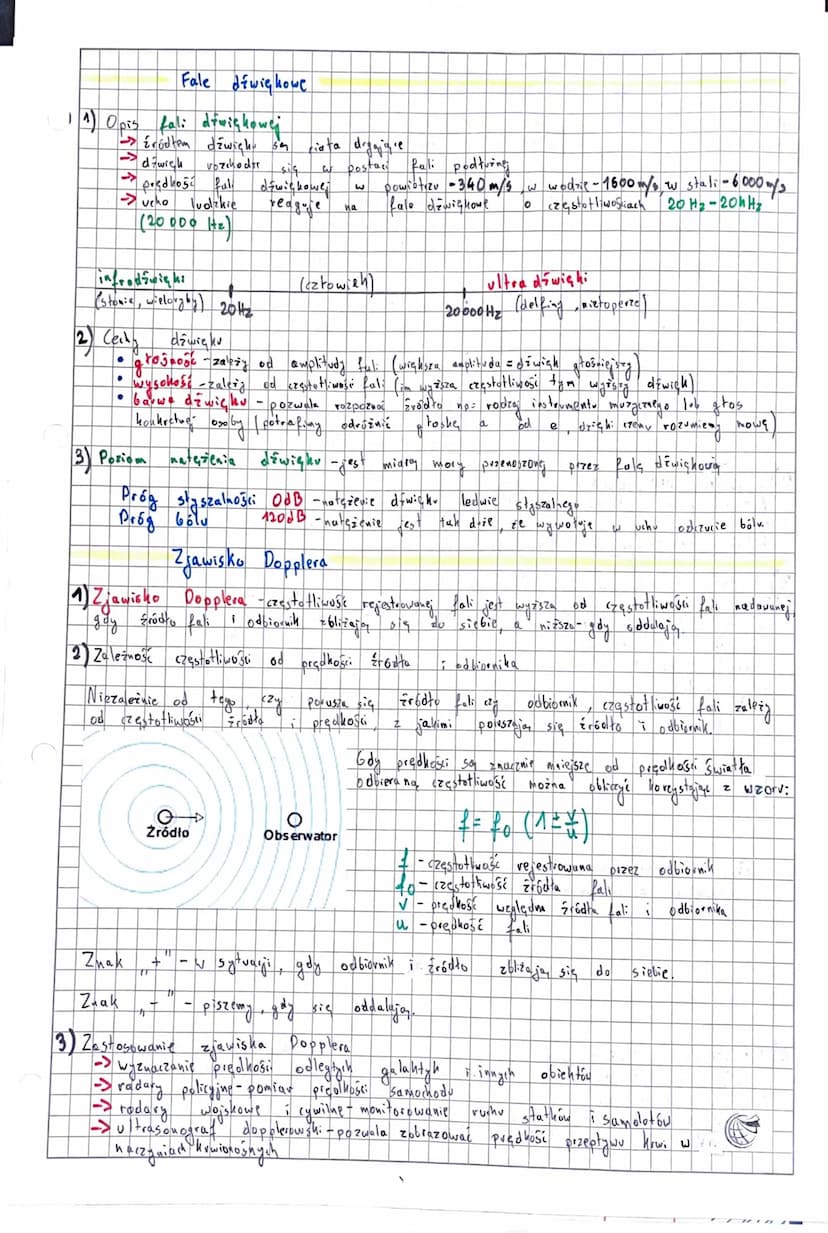 Fale dźwiękowe
1) Opis fali dźwiękowej
→ źródłem dźwięku są ciała drgające
→ dźwięk rozchodzi się w postaci fali podłużnej
→ prędkość fali dźwiękowej w powietrzu - 340 m/s, w wodzie - 1500 m/s, w stali - 6000 m/s
→ ucho ludzkie reaguje na fale dźwiękowe o częstotliwościach 20 Hz - 20 kHz
(20 000 Hz)
infradźwięki (człowiek) ultradźwięki
(słonie, wieloryby) 20 Hz 20 000 Hz (delfiny, nietoperze)
2) Cechy dźwięku
• głośność - zależy od amplitudy fali (większa amplituda = dźwięk głośniejszy)
• wysokość - zależy od częstotliwości fali (im wyższa częstotliwość tym wyższy dźwięk)
• barwa dźwięku - pozwala rozpoznać źródło np: rodzaj instrumentu muzycznego lub głos
konkretnej osoby (potrafimy odróżnić głoskę a od e, dzięki czemu rozumiemy mowę)
3) Poziom natężenia dźwięku - jest miarą mocy przenoszonej przez falę dźwiękową
Próg słyszalności 0 dB - natężenie dźwięku ledwie słyszalnego
Próg bólu 120 dB - natężenie jest tak duże, że wywołuje w uchu odczucie bólu.
Zjawisko Dopplera
1) Zjawisko Dopplera - częstotliwość rejestrowanej fali jest wyższa od częstotliwości fali nadawanej,
gdy źródło fali i odbiornik zbliżają się do siebie, a niższa - gdy oddalają.
2) Zależność częstotliwości od prędkości źródła i odbiornika
Niezależnie od tego, czy porusza się źródło fali czy odbiornik, częstotliwość fali zależy
od częstotliwości źródła i prędkości, z jakimi poruszają się źródło i odbiornik.
Gdy prędkości są znacznie mniejsze od prędkości światła
odbieraną częstotliwość można obliczyć korzystając z wzoru:
Źródło Obserwator
f = f₀ (1 ± v/u)
f - częstotliwość rejestrowana przez odbiornik
f₀ - częstotliwość źródła fali
v - prędkość względna źródła fali i odbiornika
u - prędkość fali
Znak „+" - w sytuacji, gdy odbiornik i źródło zbliżają się do siebie.
Znak „-" - piszemy, gdy się oddalają.
3) Zastosowanie zjawiska Dopplera
→ wyznaczanie prędkości odległych galaktyk i innych obiektów
→ radary policyjne - pomiar prędkości samochodu
→ radary wojskowe i cywilne - monitorowanie ruchu statków i samolotów
→ ultrasonograf dopplerowski - pozwala zobrazować prędkość przepływu krwi w
naczyniach krwionośnych